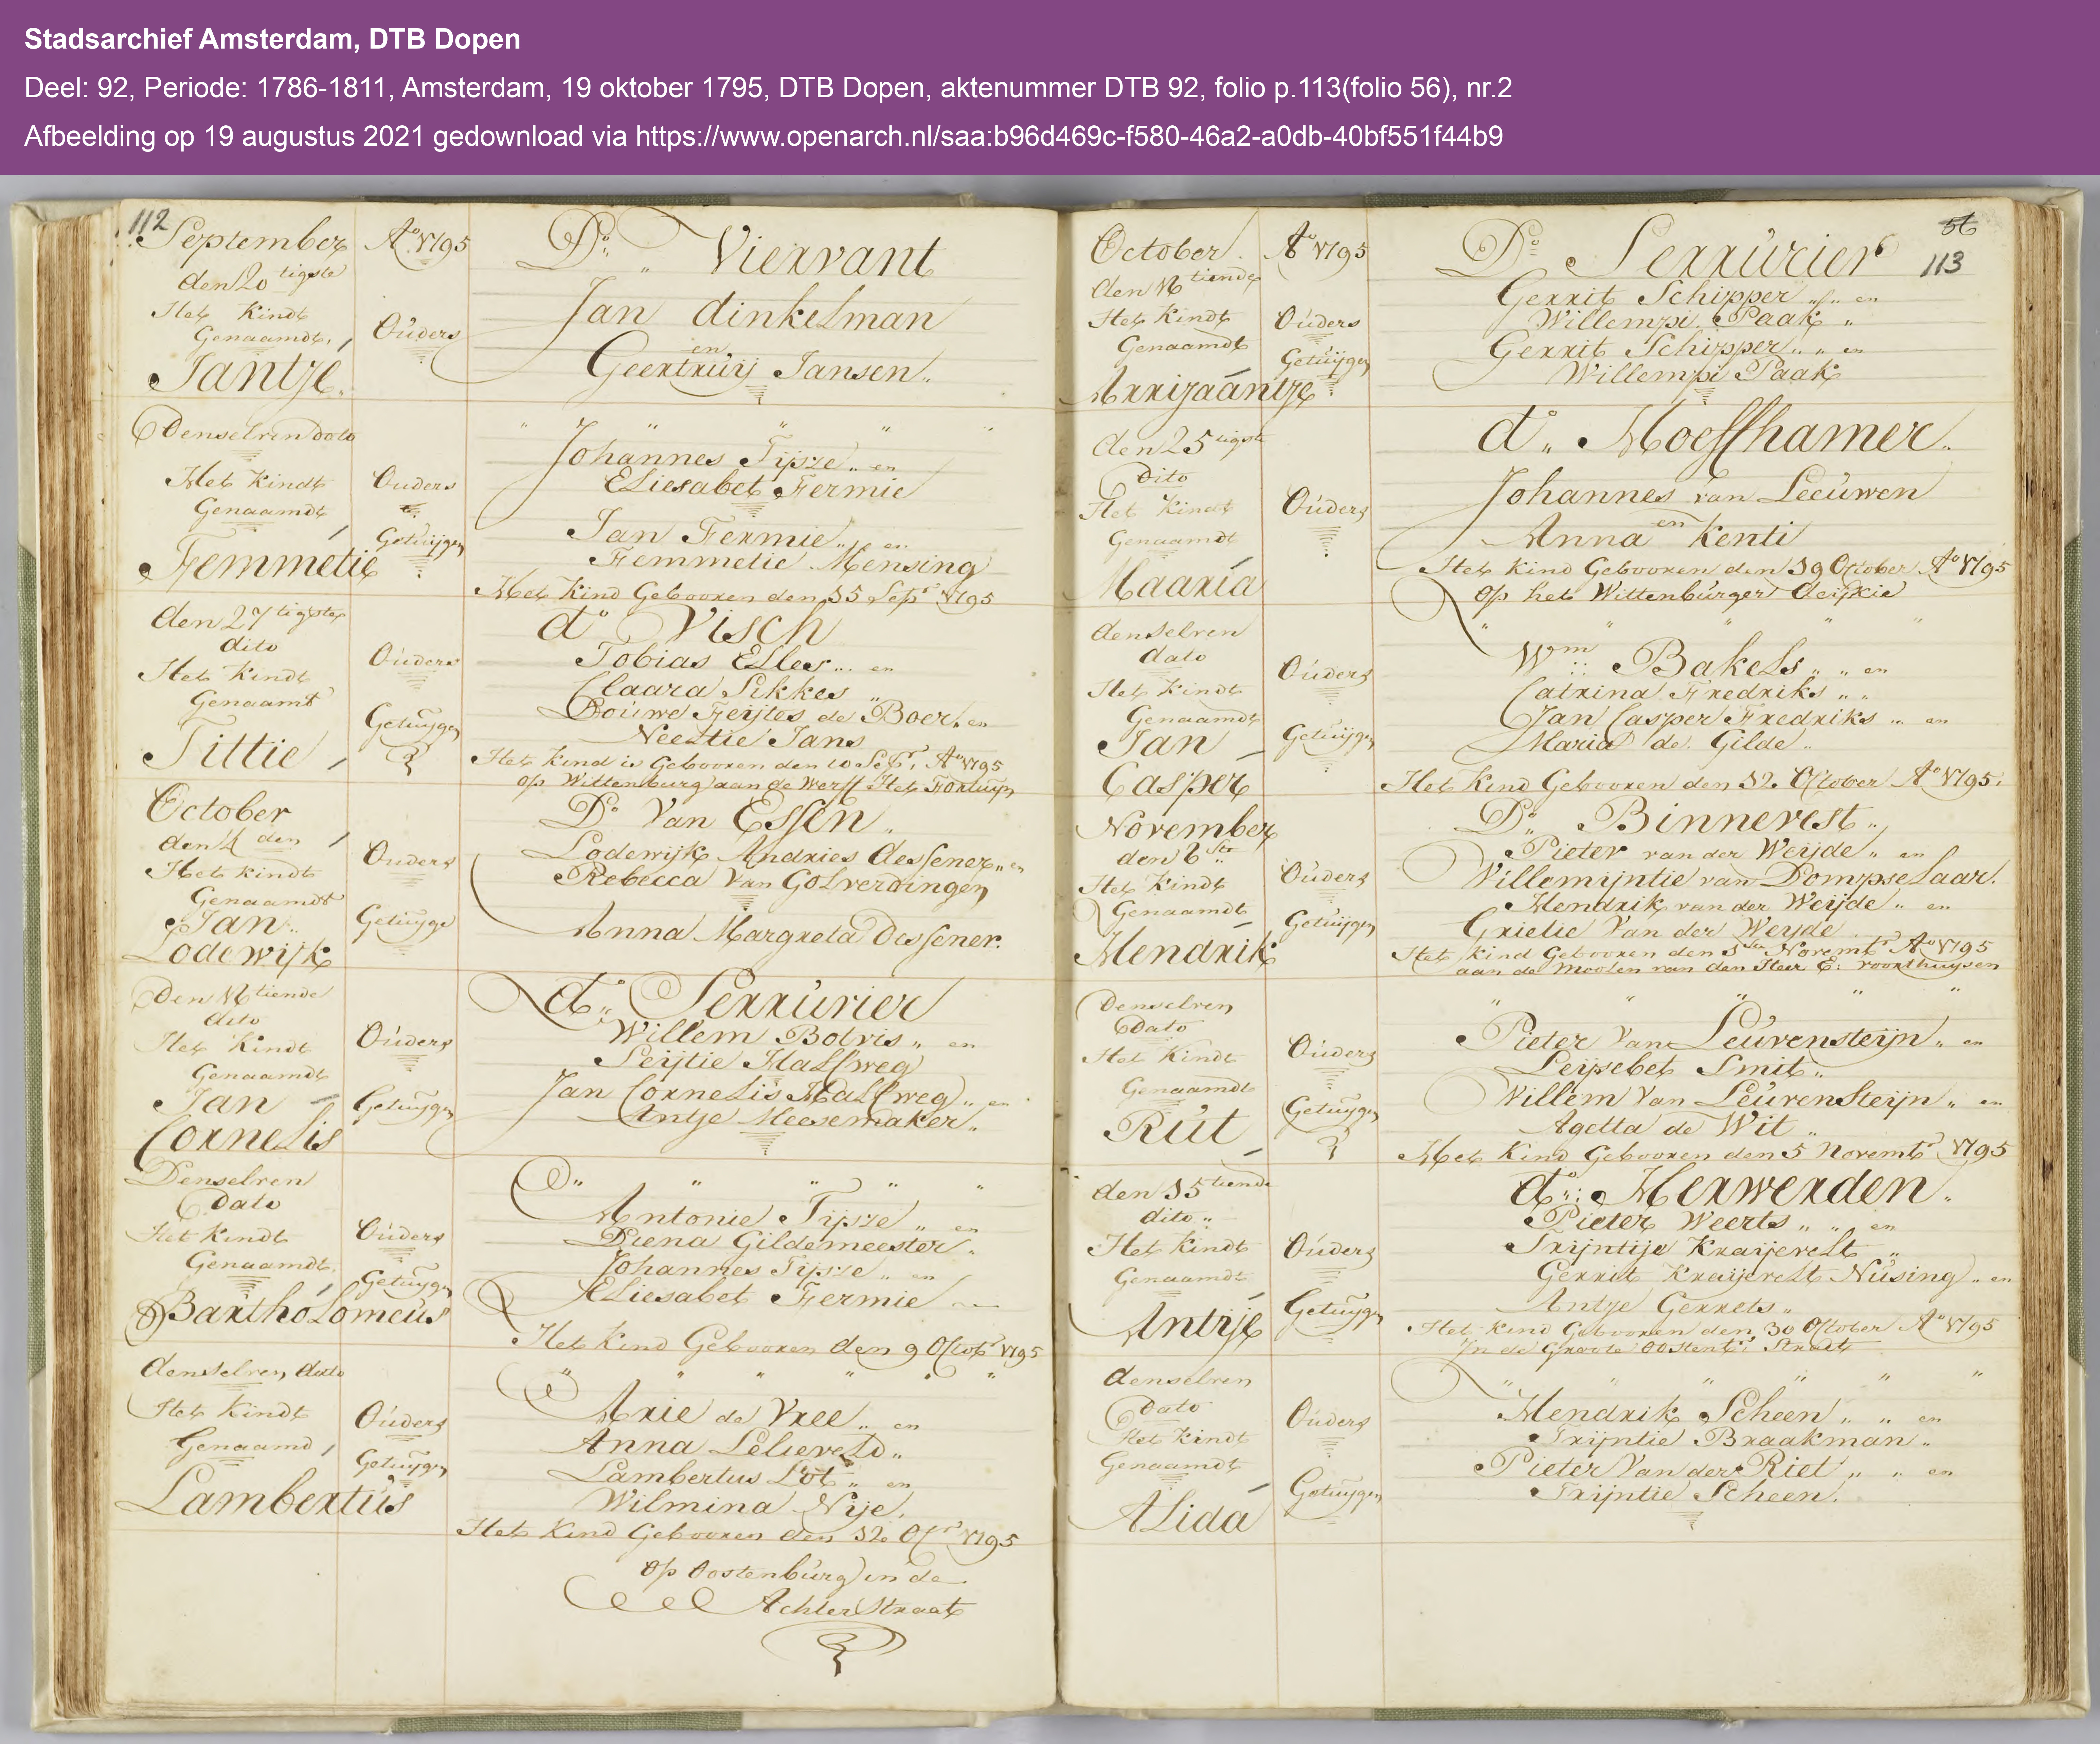 Stadsarchief Amsterdam, DTB Dopen
Deel: 92, Periode: 1786-1811, Amsterdam, 19 oktober 1795, DTB Dopen, aktenummer DTB 92, folio p.113(folio 56), nr.2
Afbeelding op 19 augustus 2021 gedownload via https://www.openarch.nl/saa:b96d469c-f580-46a2-a0db-40bf551f44b9
112
September Ao 1795 Do Viervant
den 20 tigste
Het Kindt Genaamdt
Jantje
Ouders
Jan dinkelman
en
Geertruij Jansen
Denselven dato
Het Kindt Genaamdt
Femmetie
Ouders
Johannes Tijsze en
Eliesabet Fermie
Getuijgen
Jan Fermie en
Femmetie Mensing
Het Kind Gebooren den 15 Sepr 1795
den 27 tigste
dito
Het Kindt
Genaamt
Tittie
do Visch
Ouders
Tobias Elles en
Claara Sikkes
Getuijgen
Douwe Feijtes de Boer en
Neeltie Jans
Het Kind is Gebooren den 10 Sepr Ao 1795
op Wittenburg aan de Werff Het Fortuijn
October
den 4 den
Het Kindt
Genaamdt
Jan
Lodewijk
Do Van Essen
Ouders
Lodewijk Andries Dessener en
Rebecca Van Golverdingen
Getuijge
Anna Margreta Dessener
Den 16 tiende
dito
Het Kindt
Genaamdt
Jan
Cornelis
do Serrurier
Ouders
Willem Bolvis en
Seijtie Halfweg
Getuijgen
Jan Cornelis Halfweg en
Antje Meesemaker
Denselven
Dato
Het Kindt
Genaamdt
Bartholomeus
Ouders
Antonie Tijsze en
Diena Gildemeester
Getuijgen
Johannes Tijsze en
Eliesabet Fermie
Het Kind Gebooren den 9 Octobr 1795
denselven dato
Het Kindt
Genaamd
Lambertus
Ouders
Arie de Vree en
Anna Leliveld
Getuijgen
Lambertus Lot en
Wilmina Nije
Het Kind Gebooren den 12 Ocr 1795
op Oostenburg in de
Achter Straat
56
113
October Ao 1795 Do Serrurier
den 16 tiende
Het Kindt
Genaamdt
Arrijaantje
Ouders
Gerrit Schipper en
Willempi Paak
Getuijgen
Gerrit Schipper en
Willempi Paak
den 25 tigste
Dito
Het Kindt
Genaamdt
Maaria
do Moesshamer
Ouders
Johannes van Leeuwen
en
Anna Kenti
Het Kind Gebooren den 19 October Ao 1795
op het Wittenburger
denselven
dato
Het Kindt
Genaamdt
Jan
Casper
Ouders
Wm Bakels en
Catrina Fredriks
Getuijgen
Jan Casper Fredriks en
Maria de Gilde
Het Kind Gebooren den 12 October Ao 1795
November
den 6 ste
Het Kindt
Genaamdt
Hendrik
Do Binnevest
Ouders
Pieter van der Weijde en
Willemijntie van Dompselaar
Getuijgen
Hendrik van der Weijde en
Grietie Van der Weijde
Het Kind Gebooren den Novembr Ao 1795
aan de Moolen van den Heer E: voorthuijsen
Denselven
Dato
Het Kindt
Genaamdt
Rut
Ouders
Pieter Van Leuvensteijn en
Leijsebet Smit
Getuijgen
Willem Van Leuvensteijn en
Agetta de Wit
Het Kind Gebooren den 5 Novembr 1795
den 15 tiende
dito
Het Kindt
Genaamdt
Antije
do Herwerden
Ouders
Pieter Weerts en
Trijntije Kraijevelt
Getuijgen
Gerrit Kraijevelt Nusing en
Antje Gerrets
Het Kind Gebooren den 30 October Ao 1795
In de Groote Oostenbr Straat
denselven
Dato
Het Kindt
Genaamdt
Alida
Ouders
Hendrik Scheen en
Trijntie Braakman
Getuijgen
Pieter Van der Riet en
Trijntie Scheen